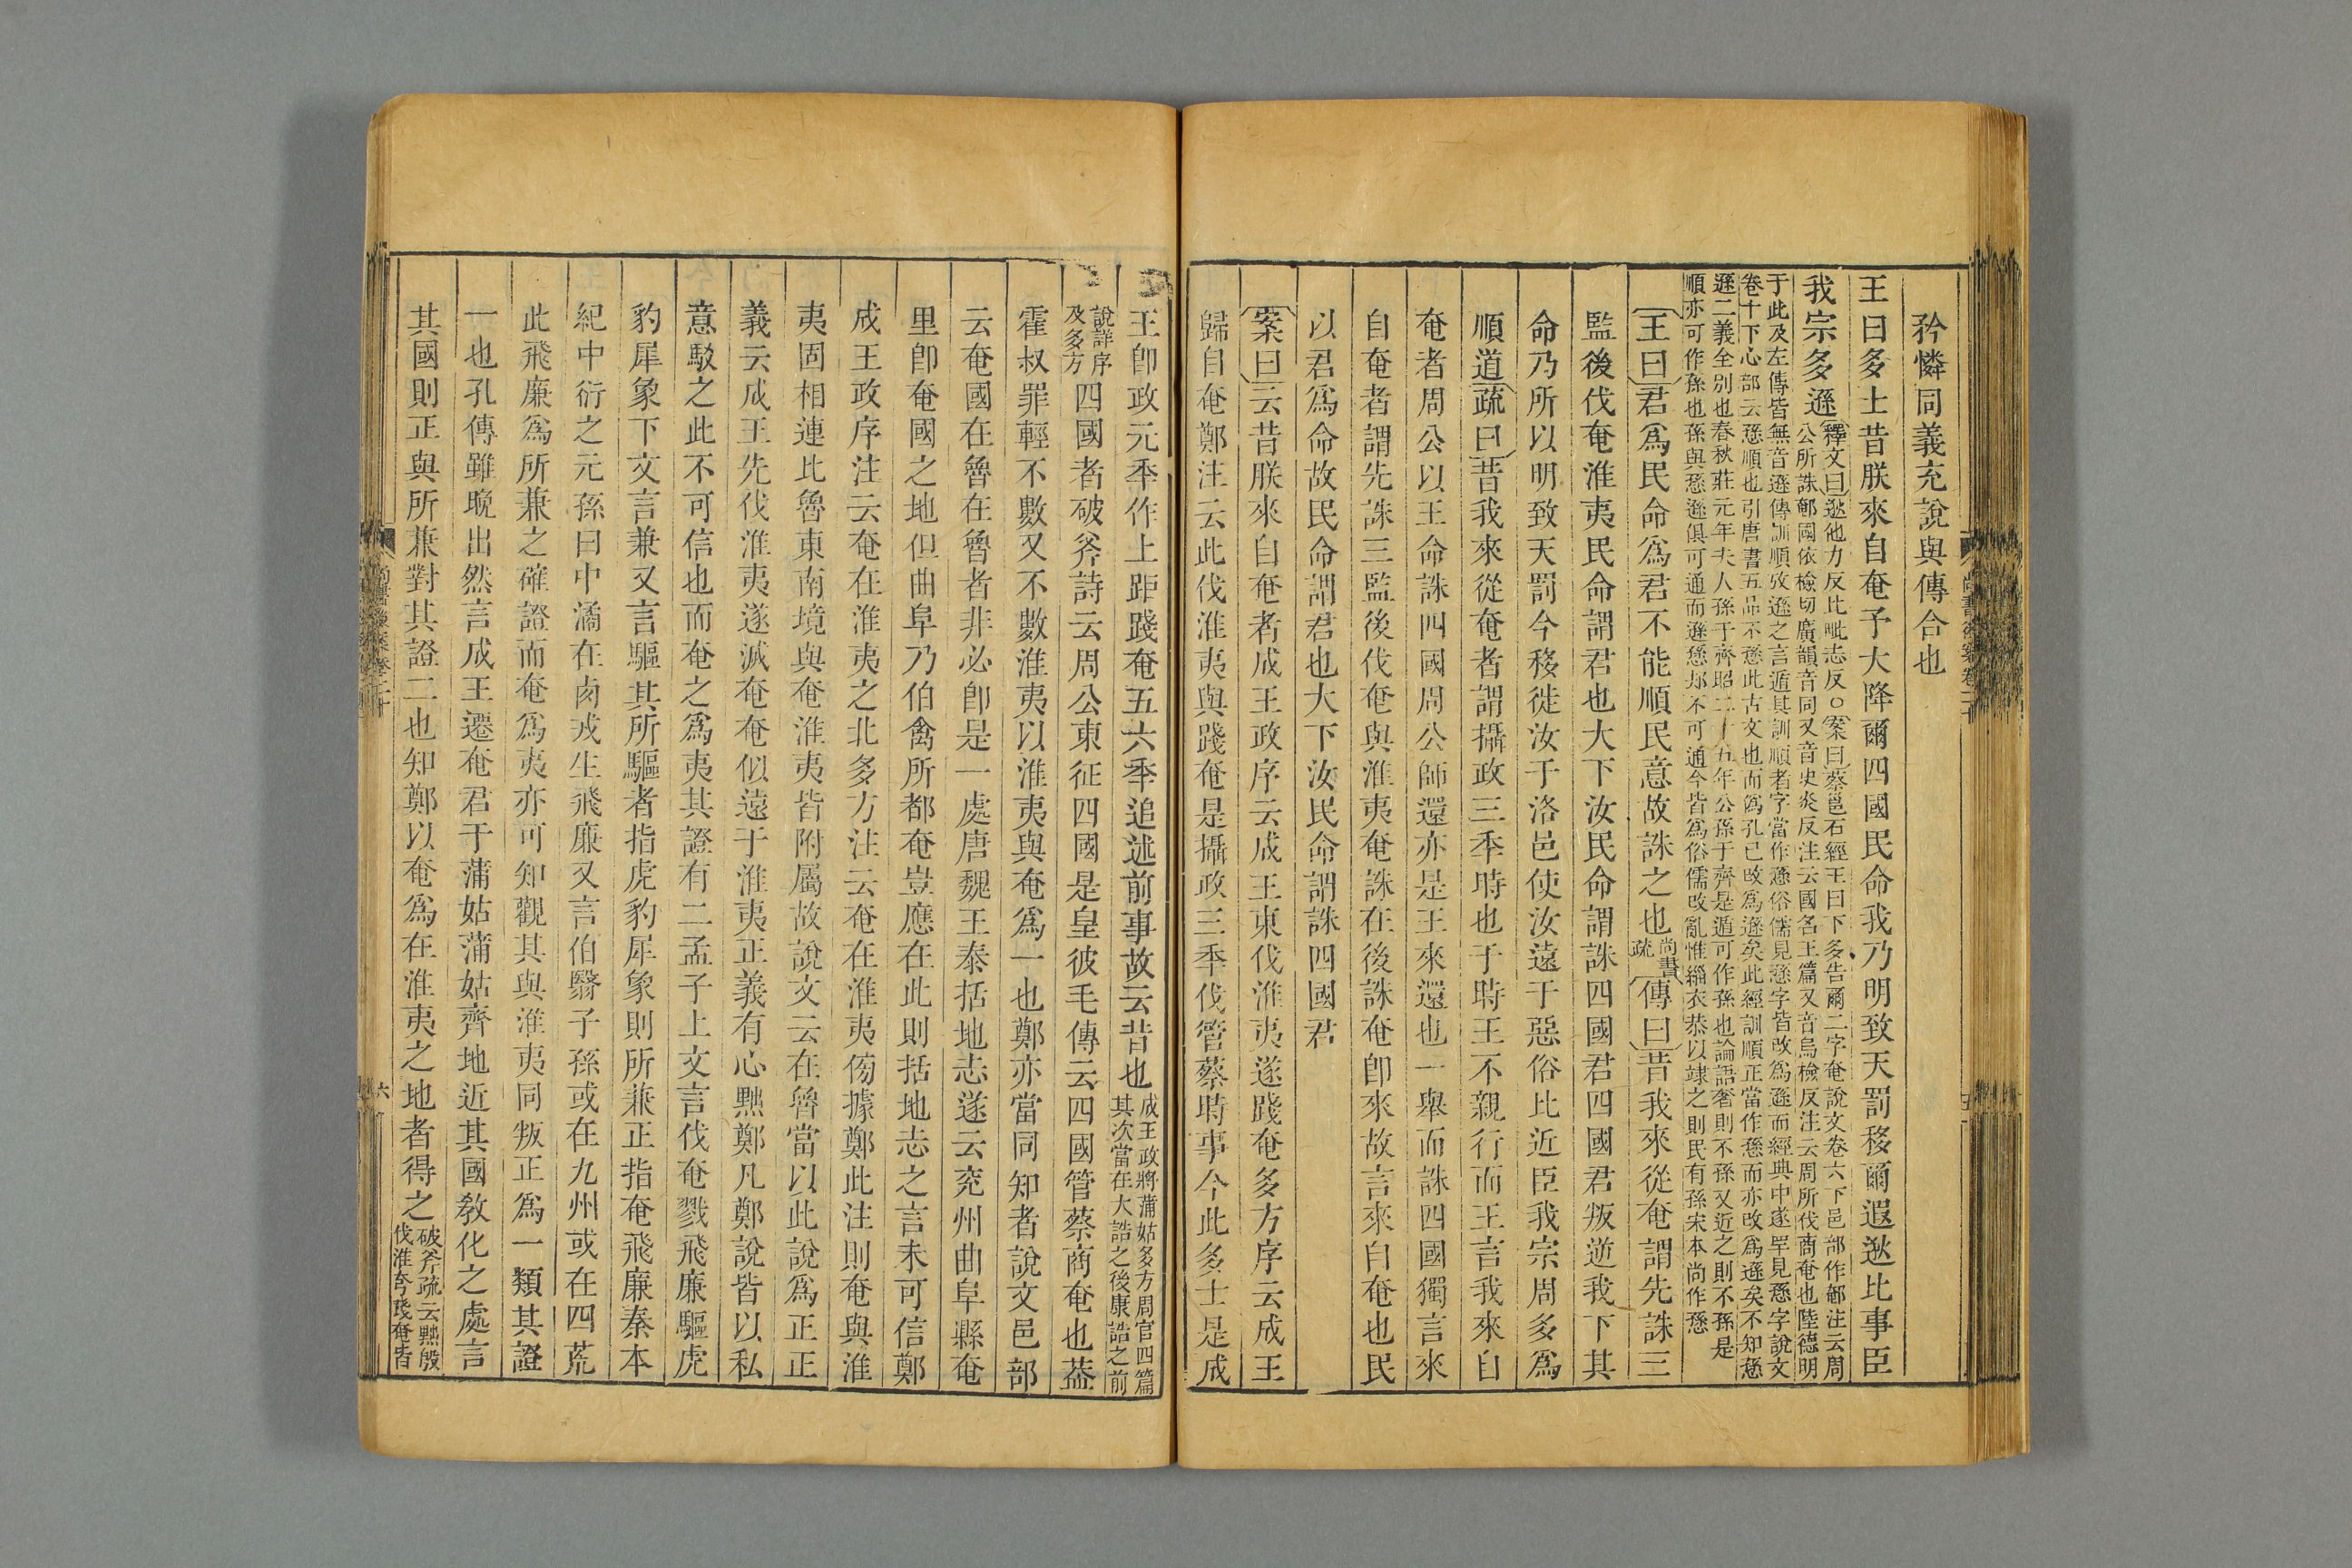 矜憐同義充說與傳合也
王曰多士昔朕來自奄予大降爾四國民命我乃明致天罰移爾遐逖比事臣
我宗多遜釋文曰逖他力反比毗志反○案曰蔡邕石經王曰下多告爾二字奄說文卷六下邑部作䣍注云周
公所誅䣍國依檢切廣韻音同又音史炎反注云國名玉篇又音烏檢反注云周所伐商奄也陸德明
于此及左傳皆無音遜傳訓順攷遜之言遁其訓順者字當作愻俗儒見愻字皆改爲遜而經典中遂罕見愻字說文
卷十下心部云愻順也引唐書五品不愻此古文也而僞孔已改爲遜矣此經訓順正當作愻而亦改爲遜矣不知愻
遜二義全別也春秋莊元年夫人孫于齊昭二十五年公孫于齊是遁可作孫也論語奢則不孫又近之則不孫是
順亦可作孫也孫與愻遜俱可通而遜愻却不可通今皆爲俗儒改亂惟緇衣恭以涖之則民有孫宋本尚作愻
王曰君爲民命爲君不能順民意故誅之也尚書疏傳曰昔我來從奄謂先誅三
監後伐奄淮夷民命謂君也大下汝民命謂誅四國君四國君叛逆我下其
命乃所以明致天罰今移徙汝于洛邑使汝遠于惡俗比近臣我宗周多爲
順道疏曰昔我來從奄者謂攝政三年時也于時王不親行而王言我來自
奄者周公以王命誅四國周公師還亦是王來還也一舉而誅四國獨言來
自奄者謂先誅三監後伐奄與淮夷奄誅在後誅奄卽來故言來自奄也民
以君爲命故民命謂君也大下汝民命謂誅四國君
案曰云昔朕來自奄者成王政序云成王東伐淮夷遂踐奄多方序云成王
歸自奄鄭注云此伐淮夷與踐奄是攝政三年伐管蔡時事今此多士是成
王卽政元年作上距踐奄五六年追述前事故云昔也成王政將蒲姑多方周官四篇
其次當在大誥之後康誥之前
說詳序
及多方四國者破斧詩云周公東征四國是皇彼毛傳云四國管蔡商奄也葢
霍叔罪輕不數又不數淮夷以淮夷與奄爲一也鄭亦當同知者說文邑部
云奄國在魯在魯者非必卽是一處唐魏王泰括地志遂云兖州曲阜縣奄
里卽奄國之地但曲阜乃伯禽所都奄豈應在此則括地志之言未可信鄭
成王政序注云奄在淮夷之北多方注云奄在淮夷㑥據鄭此注則奄與淮
夷固相連比魯東南境與奄淮夷皆附屬故說文云在魯當以此說爲正正
義云成王先伐淮夷遂滅奄奄似遠于淮夷正義有心黜鄭凡鄭說皆以私
意駮之此不可信也而奄之爲夷其證有二孟子上文言伐奄戮飛廉驅虎
豹犀象下文言兼又言驅其所驅者指虎豹犀象則所兼正指奄飛廉秦本
紀中衍之元孫曰中潏在西戎生飛廉又言伯翳子孫或在九州或在四荒
此飛廉爲所兼之確證而奄爲夷亦可知觀其與淮夷同叛正爲一類其證
一也孔傳雖晚出然言成王遷奄君于蒲姑蒲姑齊地近其國敎化之處言
其國則正與所兼對其證二也知鄭以奄爲在淮夷之地者得之破斧疏云黜殷
伐淮夸踐奄皆